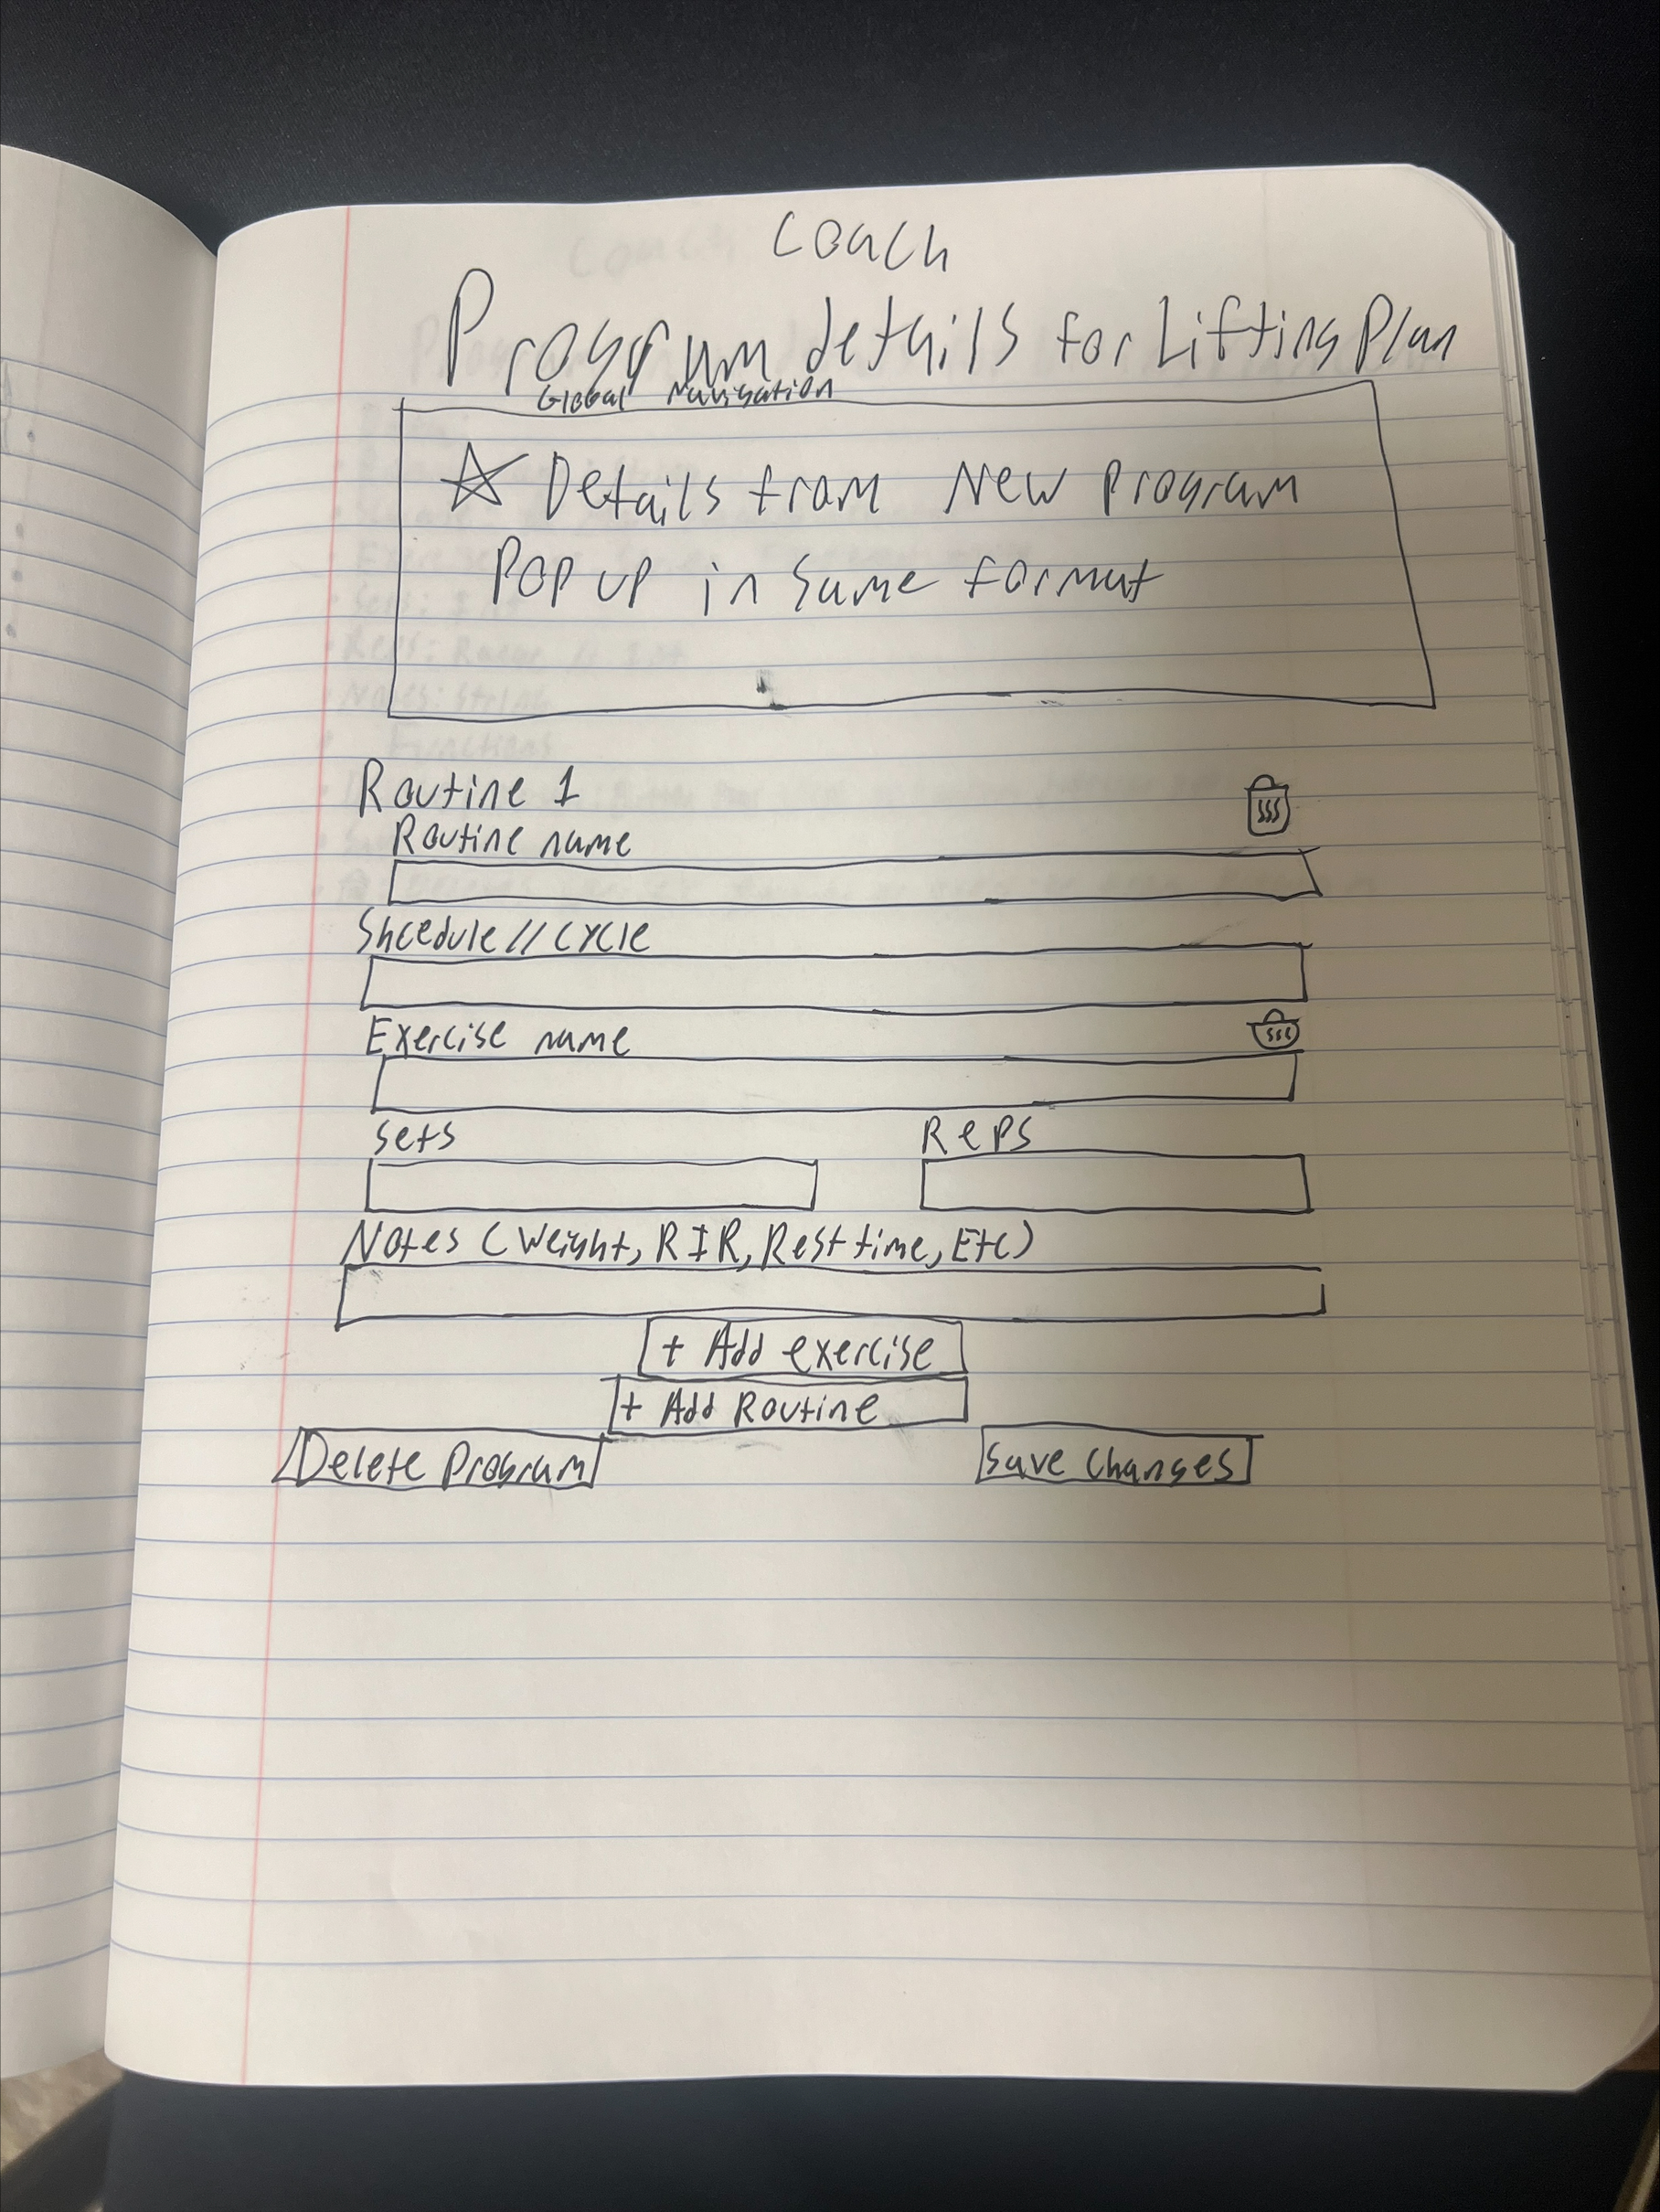 Coach
Program details for Lifting Plan
Global Navigation
☆ Details from New Program
Pop up in same format
Routine 1
Routine name
Shcedule // Cycle
Exercise name
Sets Reps
Notes (Weight, RIR, Rest time, Etc)
+ Add exercise
+ Add Routine
Delete Program Save Changes